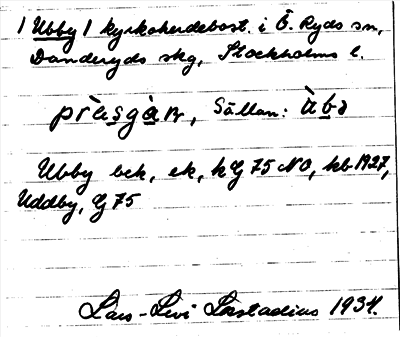 / Ubby / kyrkoherdebost. i Ö. Ryds sn,
Danderyds skg, Stockholms l.
pràsgàn, Sällan: ùbə
Ubby bck, ek, kG 75 NO, kb 1927,
Uddby, G 75
Lars-Levi Læstadius 1934.